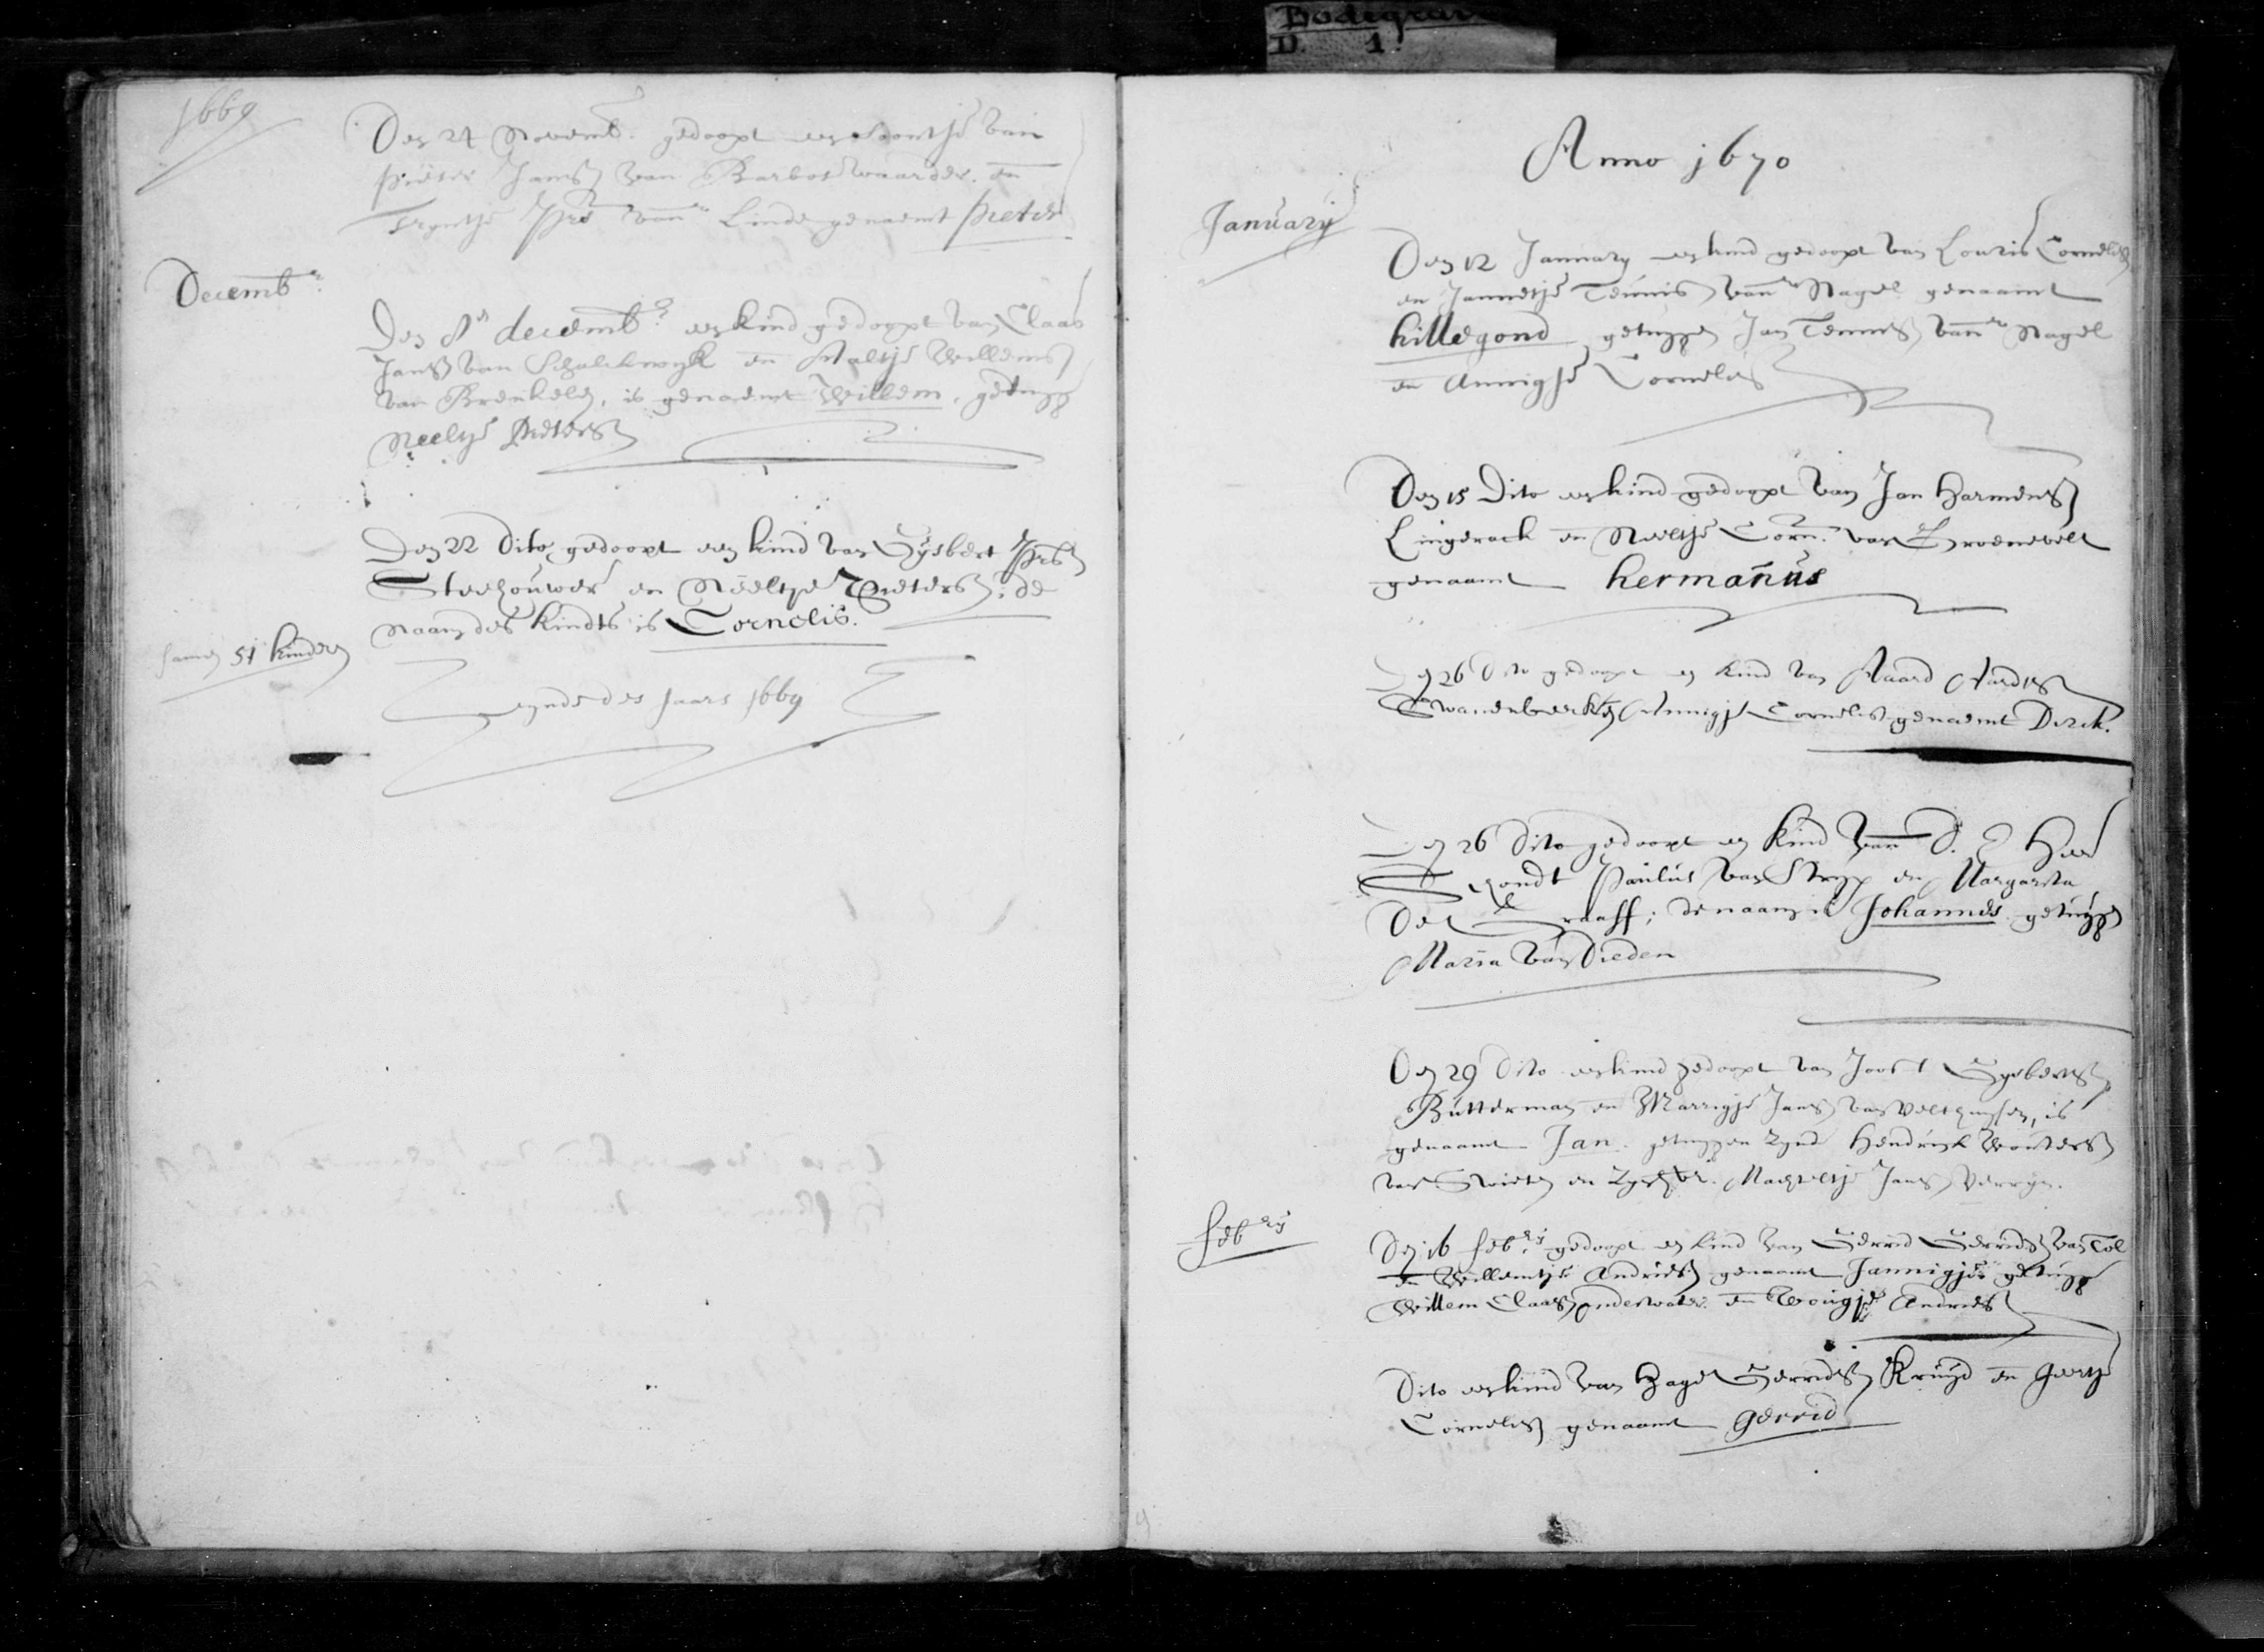 Bodegrav
D. 1.
1669
Den 24 Novemb. gedoopt een soontje van
Pieter Jansz van Barbotswaarder. en
Tryntje Prs vandr Linde genaemt Pieter
Decembr.
Den 8en decembr. een kind gedoopt van Claas
Jansz van Schalckwyk en Aaltje Willems
van Brenkelen, is genaemt Willem, getuyg
Neeltje Pieters
Den 22 dito gedoopt een kind van Gysbert Prsz
en Neeltje Pieters, de
Naam des kindts is Cornelis.
samen 51 kinderen
eynde des Jaars 1669
Anno 1670
January
Den 12 January een kind gedoopt van Louris Cornelisz
en Jannetje Teunis vandr Nagel genaamt
hillegond getuygen Jan Teunisz vandr Nagel
en Annigje Cornelis
Den 15 Dito een kind gedoopt van Jan Harmensz
Lingerack en Neeltje Corn. van Groenevelt
genaamt hermanus
Den 26 dito gedoopt een kind van Aaard Aardtsz
Swanenberk en Annigje Cornelis genaemt Dirck.
Den 26 dito gedoopt een kind van D. E Heer
Paulus van Stryp en Margareta
De Graaff; de naam is Johannes getuygen
Maria van Dieden
Den 29 dito een kind gedoopt van Joost Gysbertsz
Butterman en Marrigje Jans van Velthuysen, is
genaamt Jan. getuygen zynde Hendrick Woutersz
van Swieten en Machteltje Jans Verryn.
Febry
Den 16 Febry gedoopt een kind van Gerrid Gerridsz van Tol
en Willemtje Andries genaamt Jannigje getuyg
Willem Claasz onderwater en Andries
Dito een kind van Gerridsz Kruyd en Geertje
Cornelis genaamt Gerrid